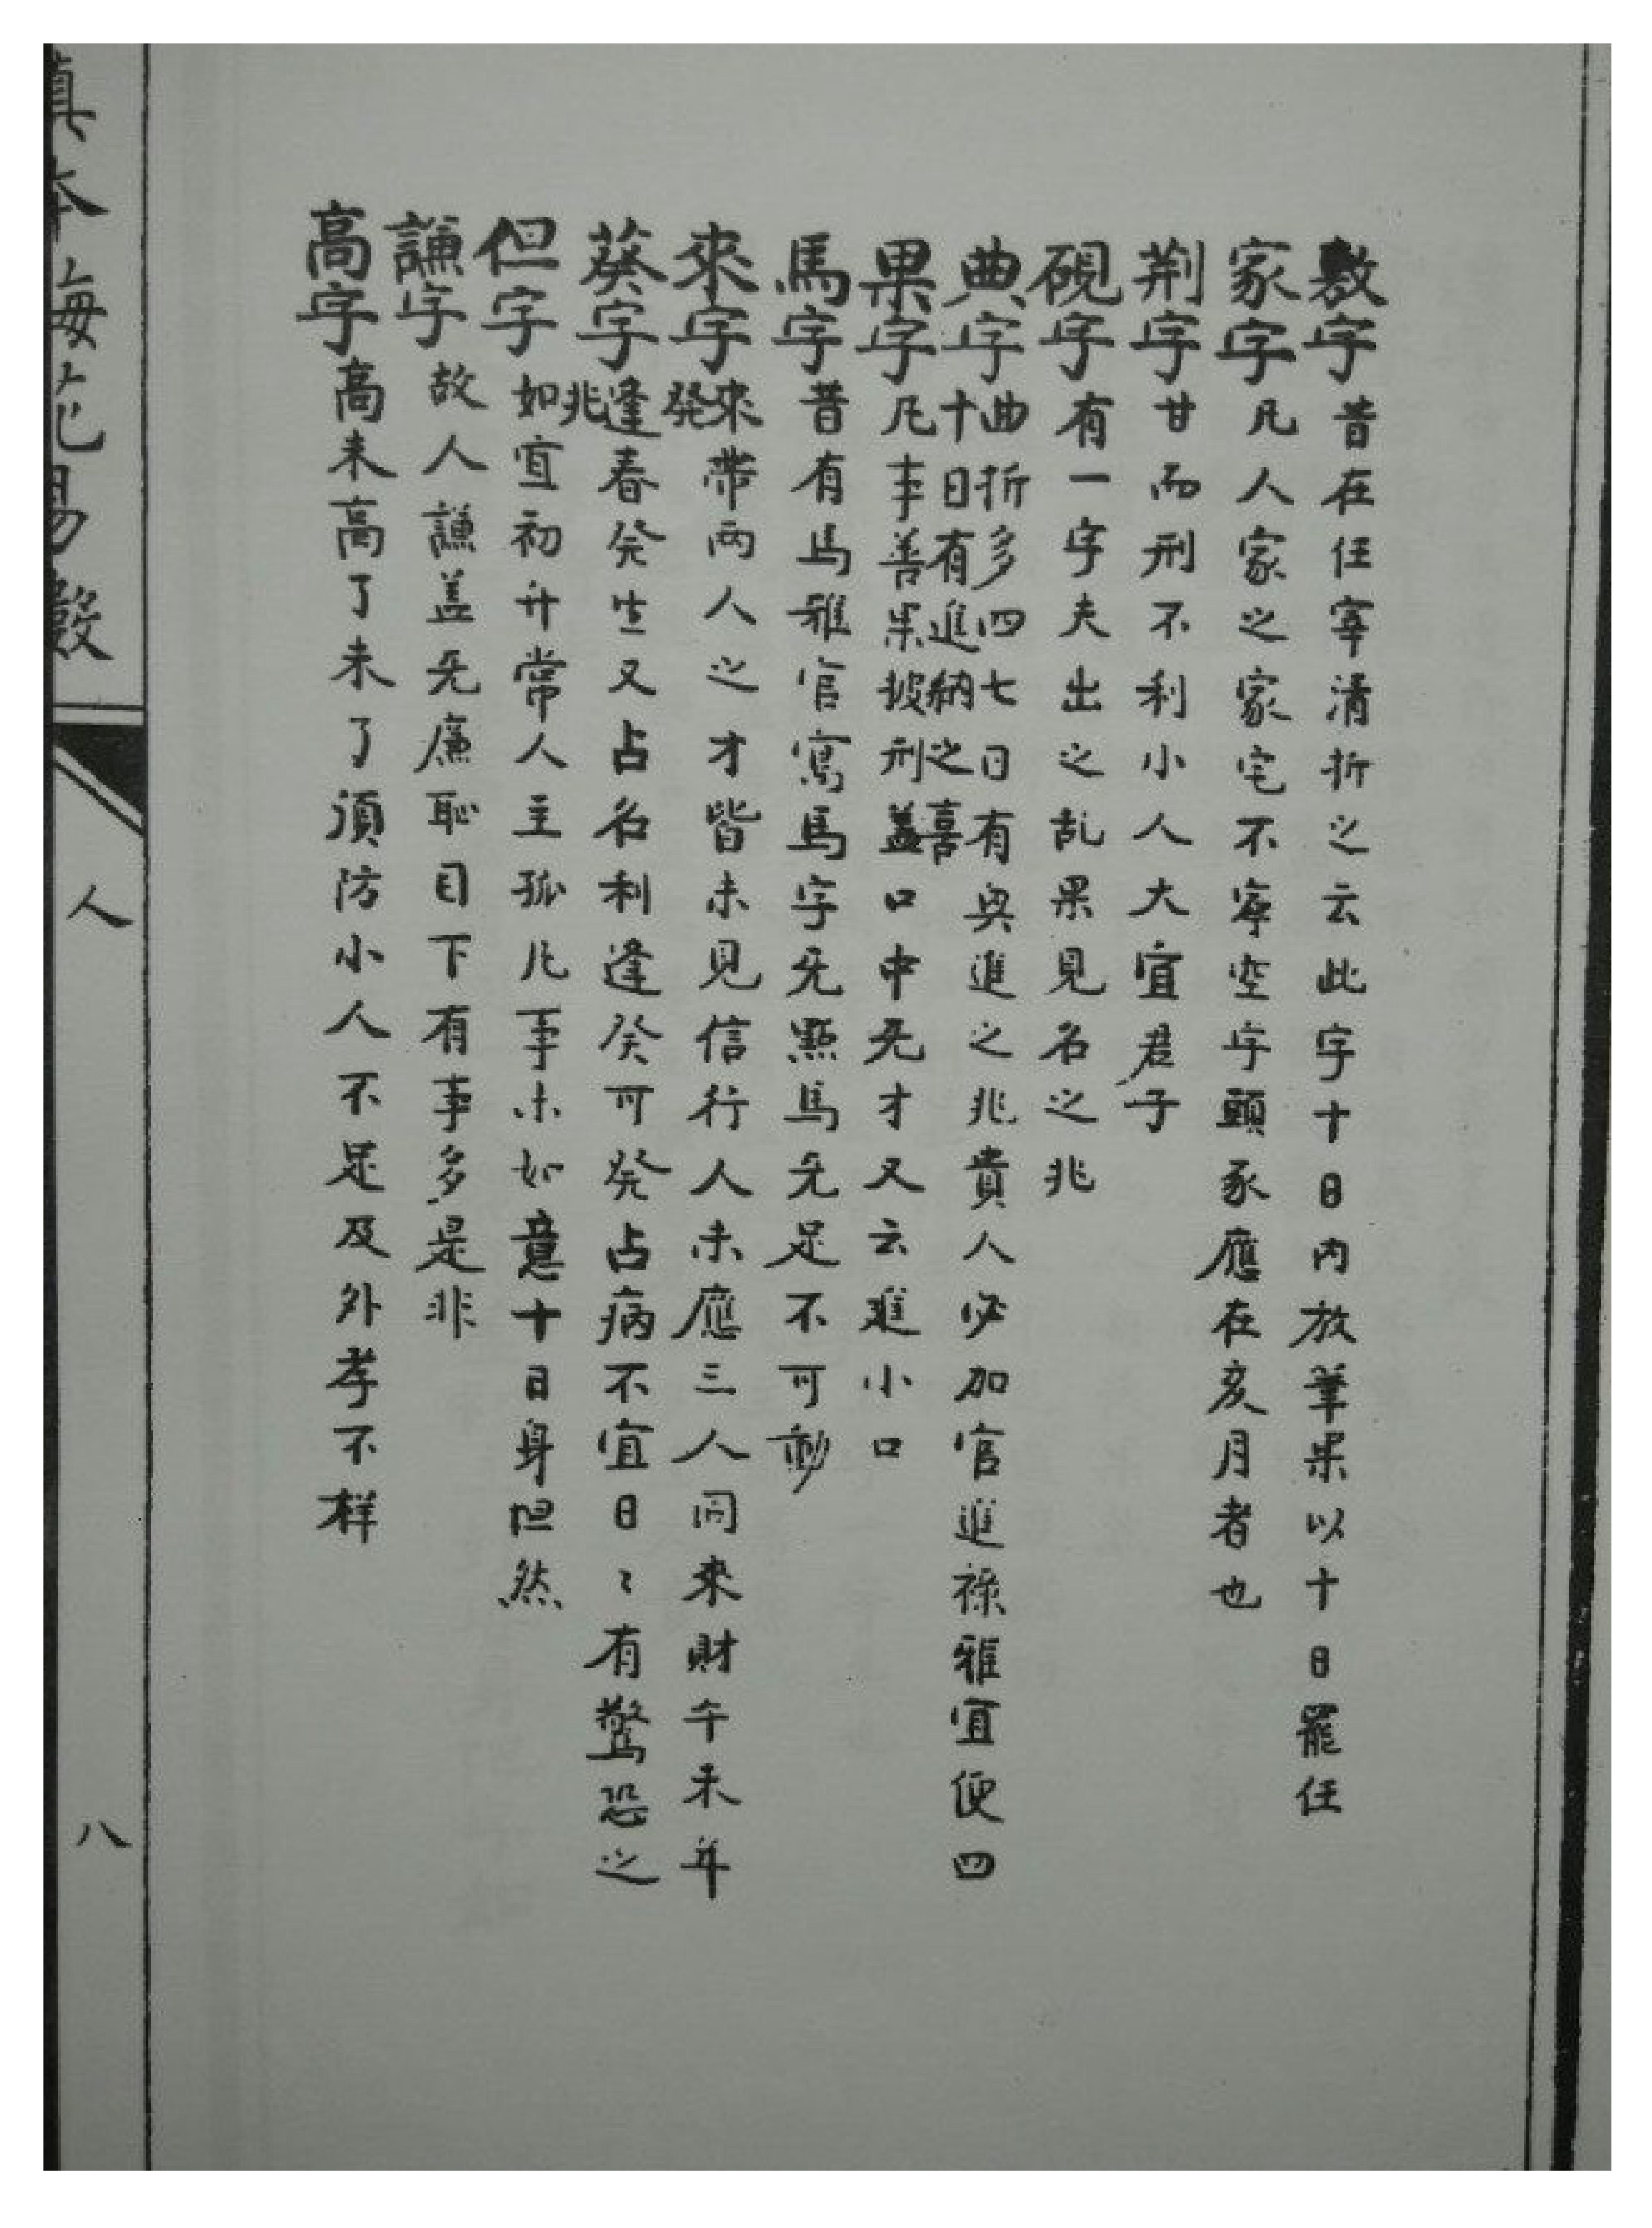 敷字昔在任宰清折之云此字十日內放筆果以十日罷任
家字凡人家之家宅不寧空字頭豕應在亥月者也
荆字甘而刑不利小人大宜君子
硯字有一字夫出之乱果見名之兆
典字曲折多四七日有與進之兆貴人必加官進祿雅宜便四
十日有進納之喜
果字凡事善果披刑盖口中无才又云進小口
馬字昔有馬雅官寫馬字无點馬无足不可動
來字來帶兩人之才皆未見信行人未應三人同來財午未年
発
葵字逢春癸生又占名利逢癸可発占病不宜日〻有驚恐之
兆
但字如宜初升常人主孤凡事未如意十日身但然
謙字故人謙盖无廉恥目下有事多是非
高字高未高了未了須防小人不足及外孝不样
真本梅花易數
人
八